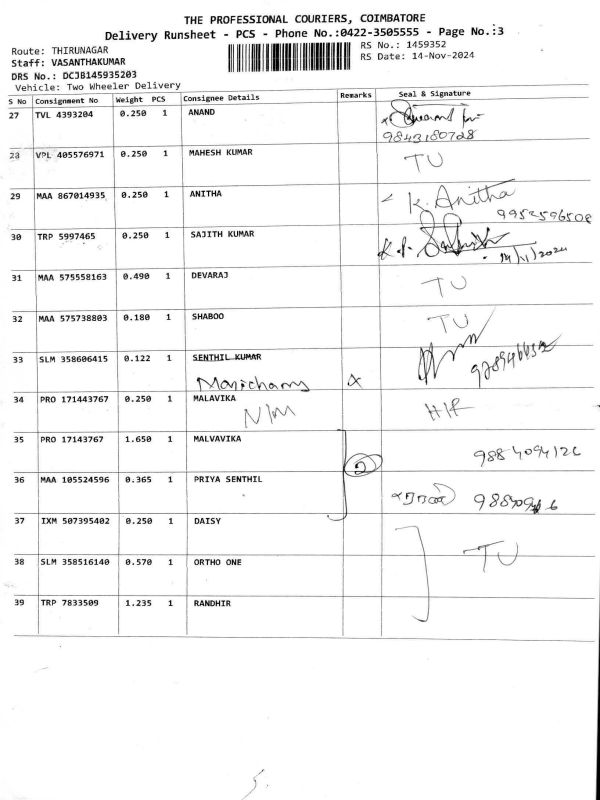 THE PROFESSIONAL COURIERS, COIMBATORE
Delivery Runsheet - PCS - Phone No.:0422-3505555 - Page No.:3
Route: THIRUNAGAR
RS No.: 1459352
Staff: VASANTHAKUMAR
RS Date: 14-Nov-2024
DRS No.: DCJB145935203
Vehicle: Two Wheeler Delivery
S No Consignment No Weight PCS Consignee Details Remarks Seal & Signature
27 TVL 4393204 0.250 1 ANAND
9843180728
28 VPL 405576971 0.250 1 MAHESH KUMAR TU
29 MAA 867014935 0.250 1 ANITHA K. Anitha
9952596508
30 TRP 5997465 0.250 1 SAJITH KUMAR K.P. Sajith
14/11/2024
31 MAA 575558163 0.490 1 DEVARAJ TU
32 MAA 575738803 0.180 1 SHABOO TU
33 SLM 358606415 0.122 1 SENTHIL KUMAR
Manichamy X
34 PRO 171443767 0.250 1 MALAVIKA H/R
N/M
35 PRO 17143767 1.650 1 MALVAVIKA 9884094126
2
36 MAA 105524596 0.365 1 PRIYA SENTHIL
37 IXM 507395402 0.250 1 DAISY
38 SLM 358516140 0.570 1 ORTHO ONE TU
39 TRP 7833509 1.235 1 RANDHIR
5.